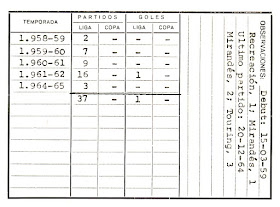 TEMPORADA PARTIDOS GOLES
LIGA COPA LIGA COPA
1.958-59 2 - - -
1.959-60 7 - - -
1.960-61 9 - - -
1.961-62 16 - 1 -
1.964-65 3 - - -
37 - 1 -
OBSERVACIONES: Debut: 15-03-59
Recreación, 1; Mirandés, 1
Ultimo partido: 20-12-64
Mirandés, 2; Touring, 3